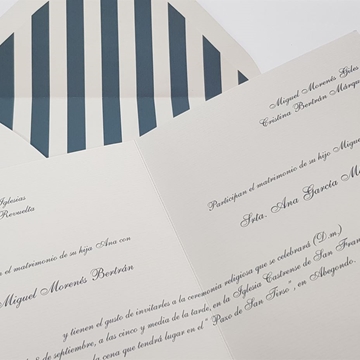 Iglesias
Revuelta
el matrimonio de su hija Ana con
Miguel Morenés Bertrán
Miguel Morenés Giles
Cristina Bertrán Márqu
Participan el matrimonio de su hijo Migu
Srta. Ana García M
y tienen el gusto de invitarles a la ceremonia religiosa que se celebrará (D.m.)
de septiembre, a las cinco y media de la tarde, en la Iglesia Castrense de San Fran
la cena que tendrá lugar en el "Pazo de San Tirso", en Abegondo.